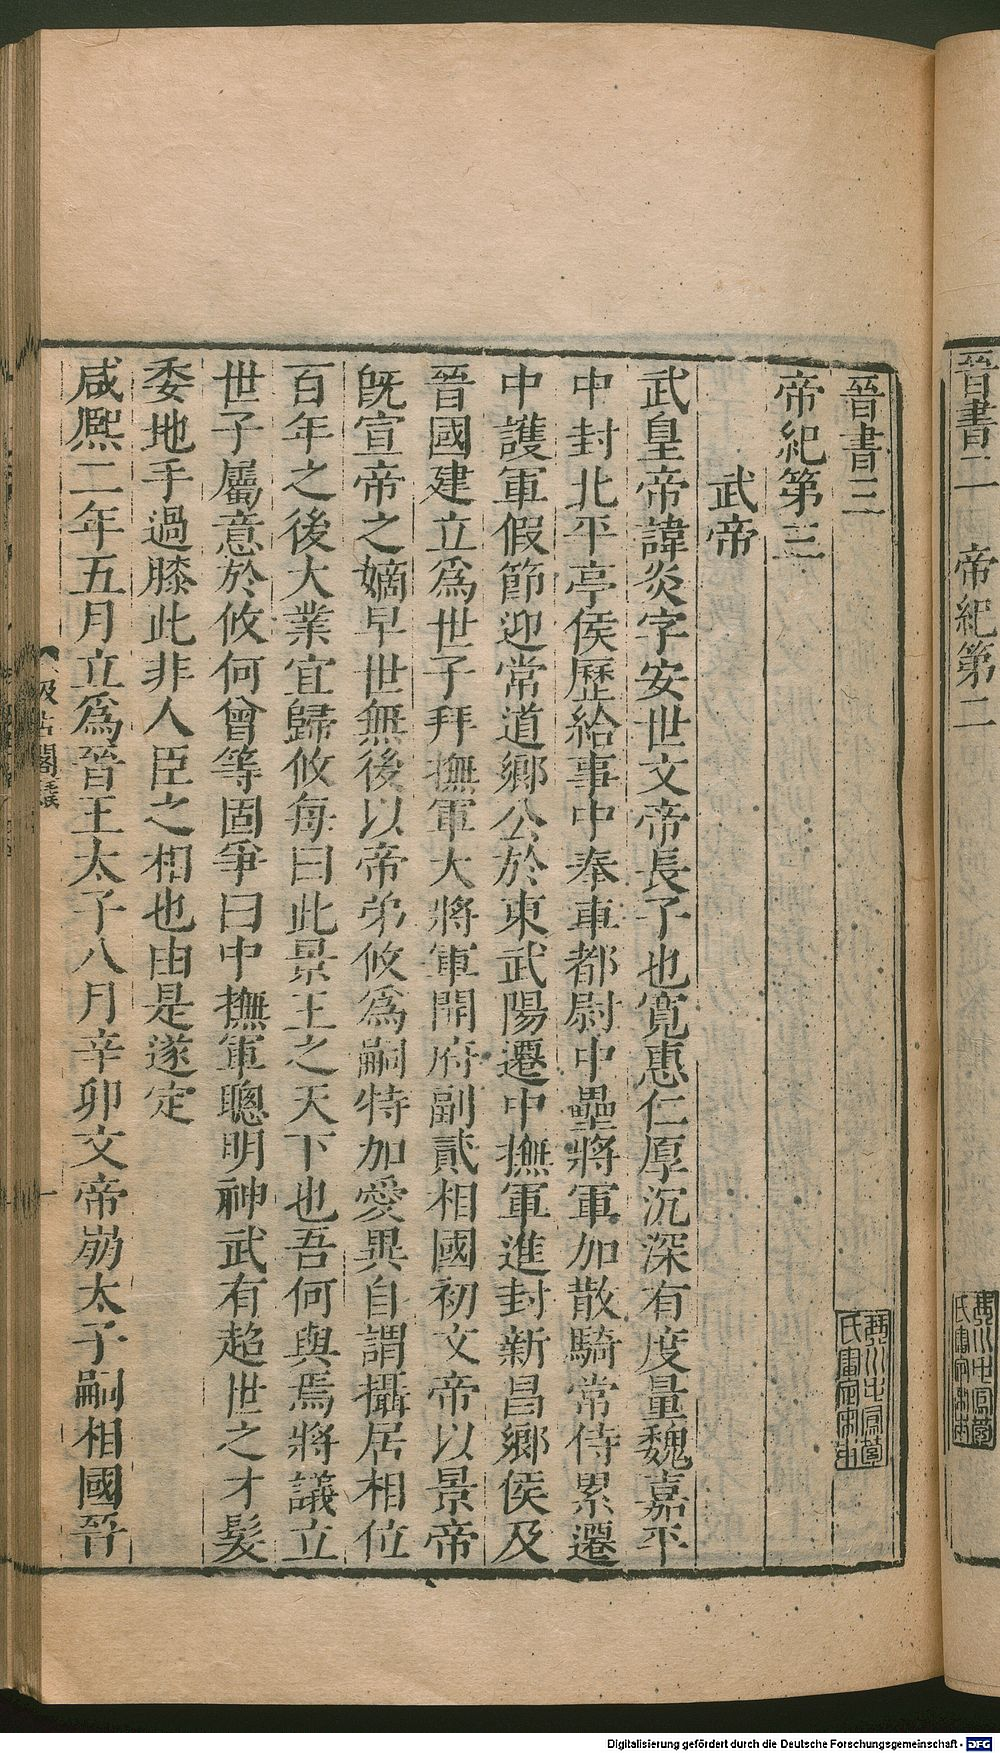 晉書二　帝紀第二
晉書三
帝紀第三
武帝
武皇帝諱炎字安世文帝長子也寬惠仁厚沉深有度量魏嘉平
中封北平亭侯歷給事中奉車都尉中壘將軍加散騎常侍累遷
中護軍假節迎常道鄉公於東武陽遷中撫軍進封新昌鄉侯及
晉國建立爲世子拜撫軍大將軍開府副貳相國初文帝以景帝
旣宣帝之嫡早世無後以帝弟攸爲嗣特加愛異自謂攝居相位
百年之後大業宜歸攸每曰此景王之天下也吾何與焉將議立
世子屬意於攸何曾等固爭曰中撫軍聰明神武有超世之才髮
委地手過膝此非人臣之相也由是遂定
咸熙二年五月立爲晉王太子八月辛卯文帝崩太子嗣相國晉
汲古閣
Digitalisierung gefördert durch die Deutsche Forschungsgemeinschaft - DFG